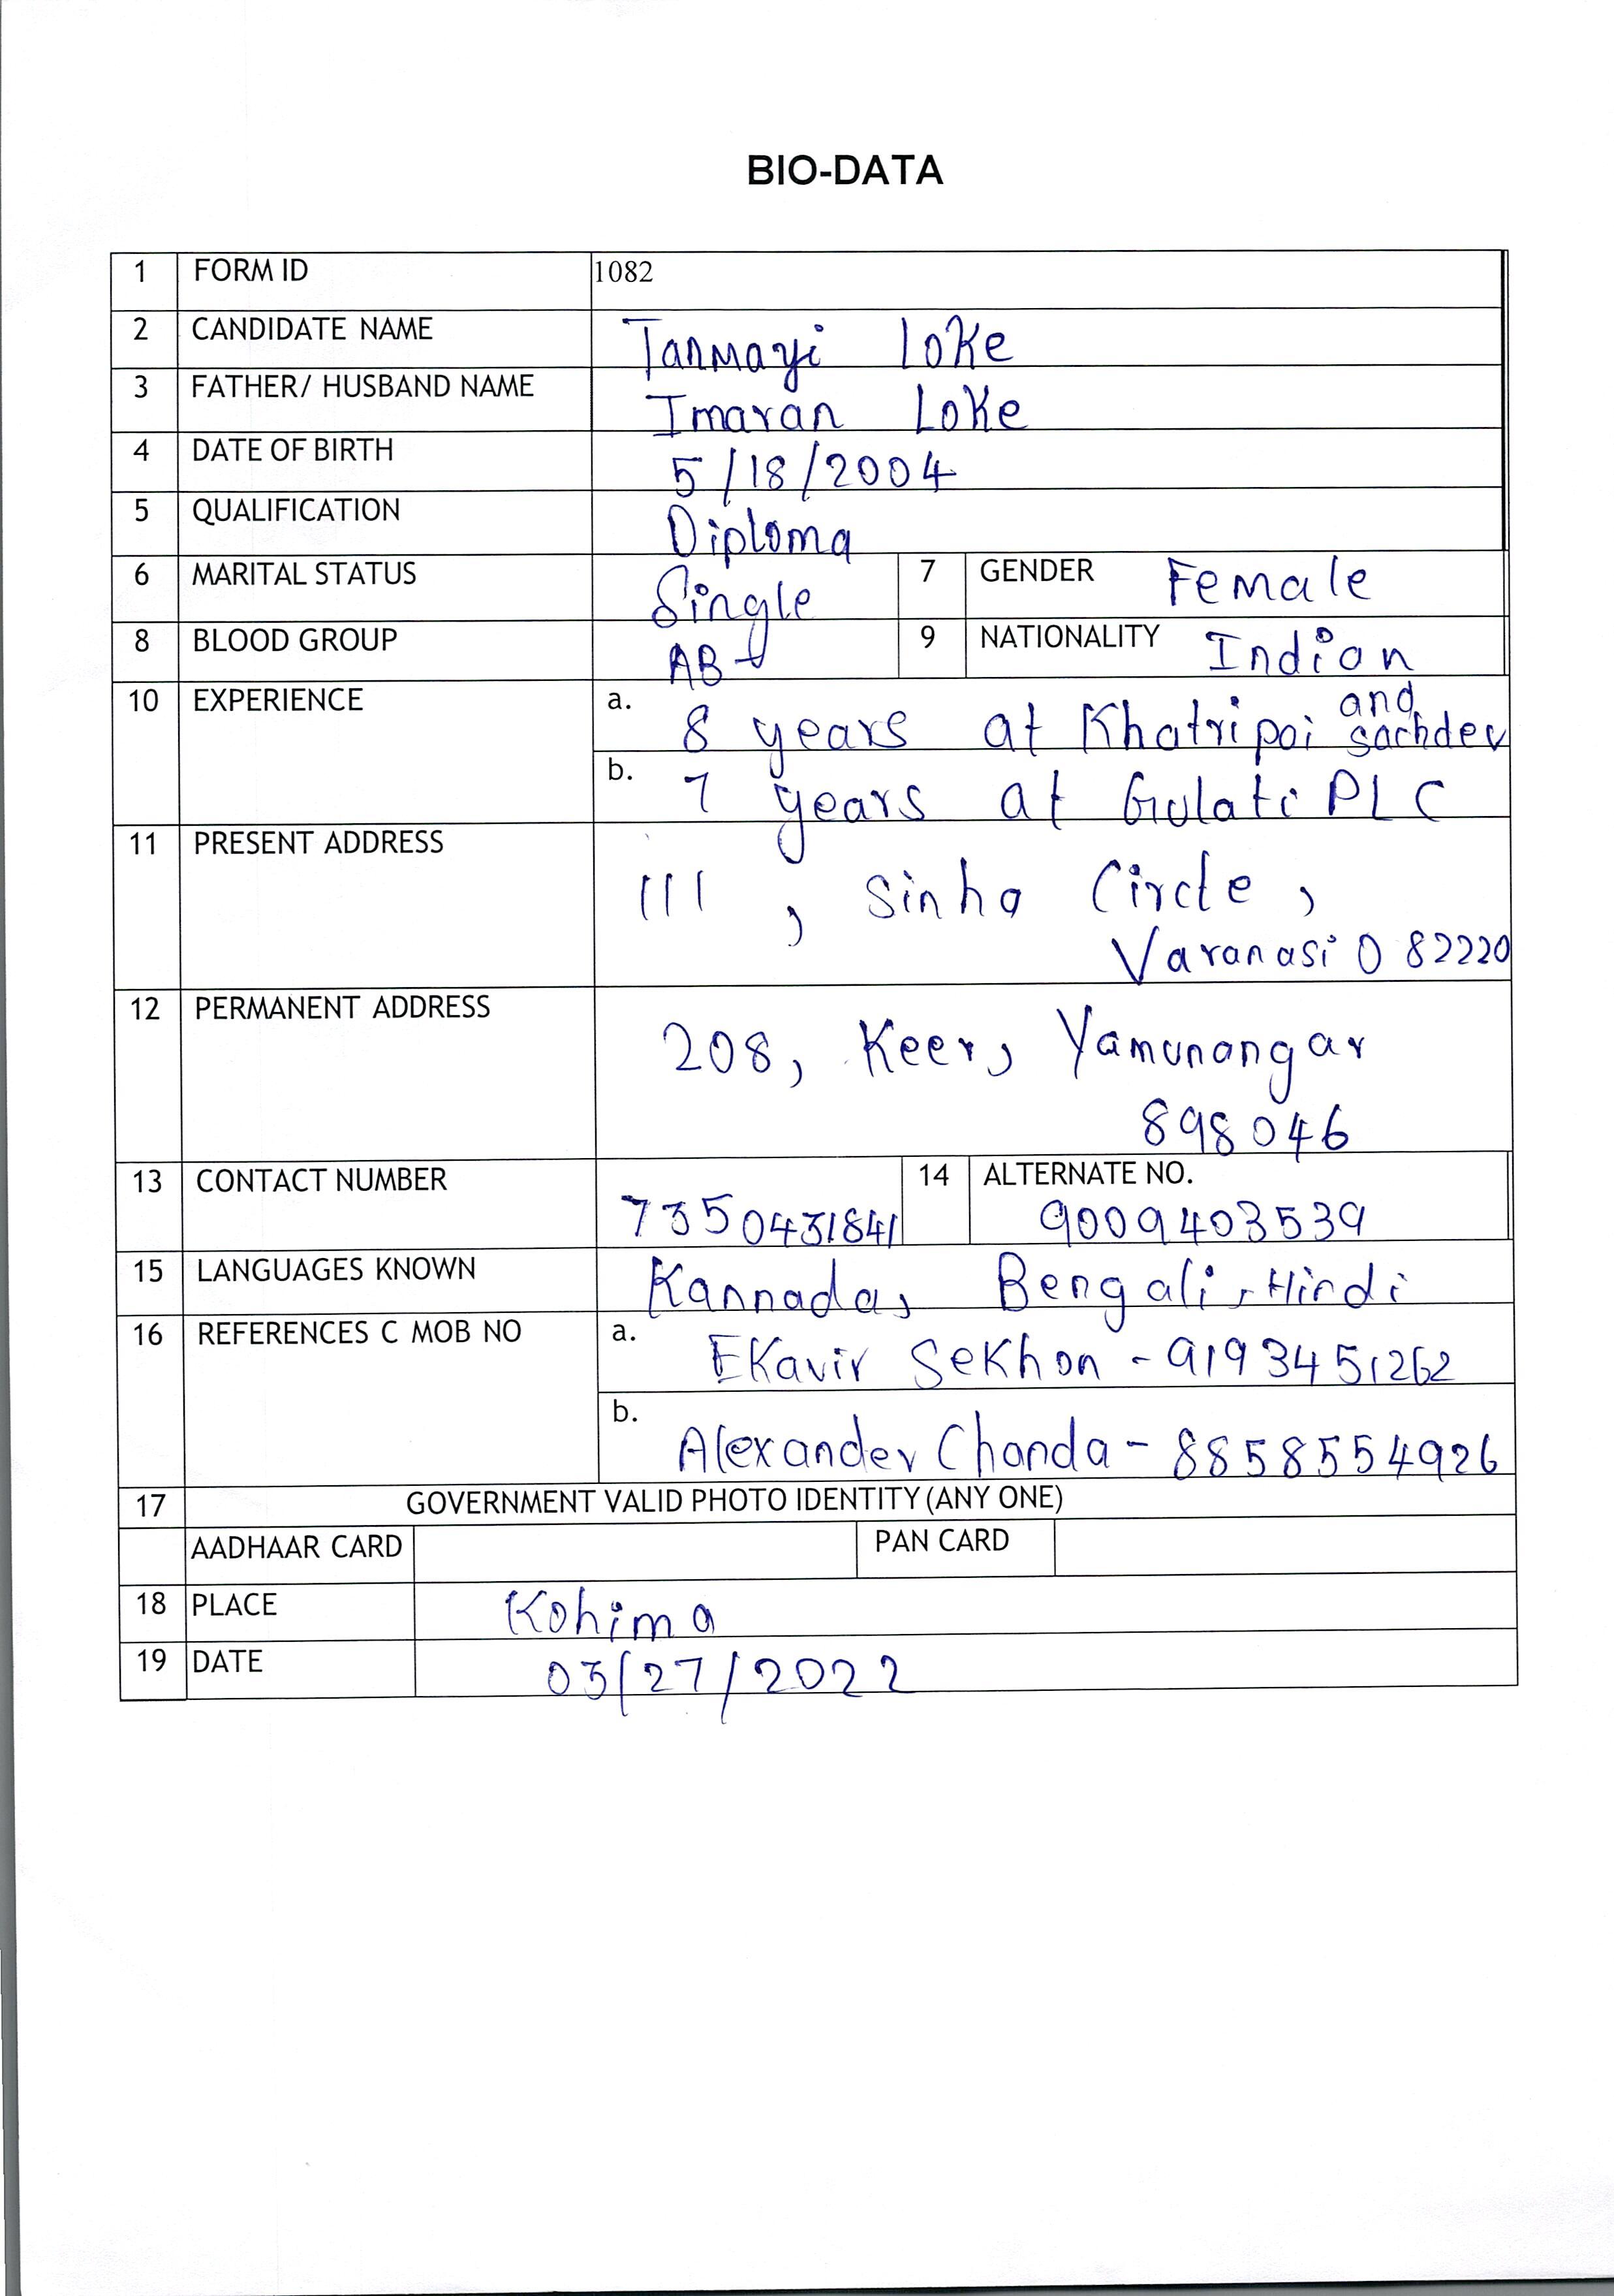 BIO-DATA
1 FORM ID 1082
2 CANDIDATE NAME Tanmayi Loke
3 FATHER/ HUSBAND NAME Imaran Loke
4 DATE OF BIRTH 5/18/2004
5 QUALIFICATION Diploma
6 MARITAL STATUS Single 7 GENDER Female
8 BLOOD GROUP AB 9 NATIONALITY Indian
10 EXPERIENCE a. 8 years at Khatripoi and sachdev
b. 7 years at Gulati PLC
11 PRESENT ADDRESS 111, Sinha Circle,
Varanasi 082220
12 PERMANENT ADDRESS 208, Keer, Yamunangar
898046
13 CONTACT NUMBER 7350431841 14 ALTERNATE NO. 9009403539
15 LANGUAGES KNOWN Kannada, Bengali, Hindi
16 REFERENCES C MOB NO a. EKavir Sekhon - 9193451262
b. Alexander Chanda - 8858554926
17 GOVERNMENT VALID PHOTO IDENTITY (ANY ONE)
AADHAAR CARD PAN CARD
18 PLACE Kohima
19 DATE 03/27/2022